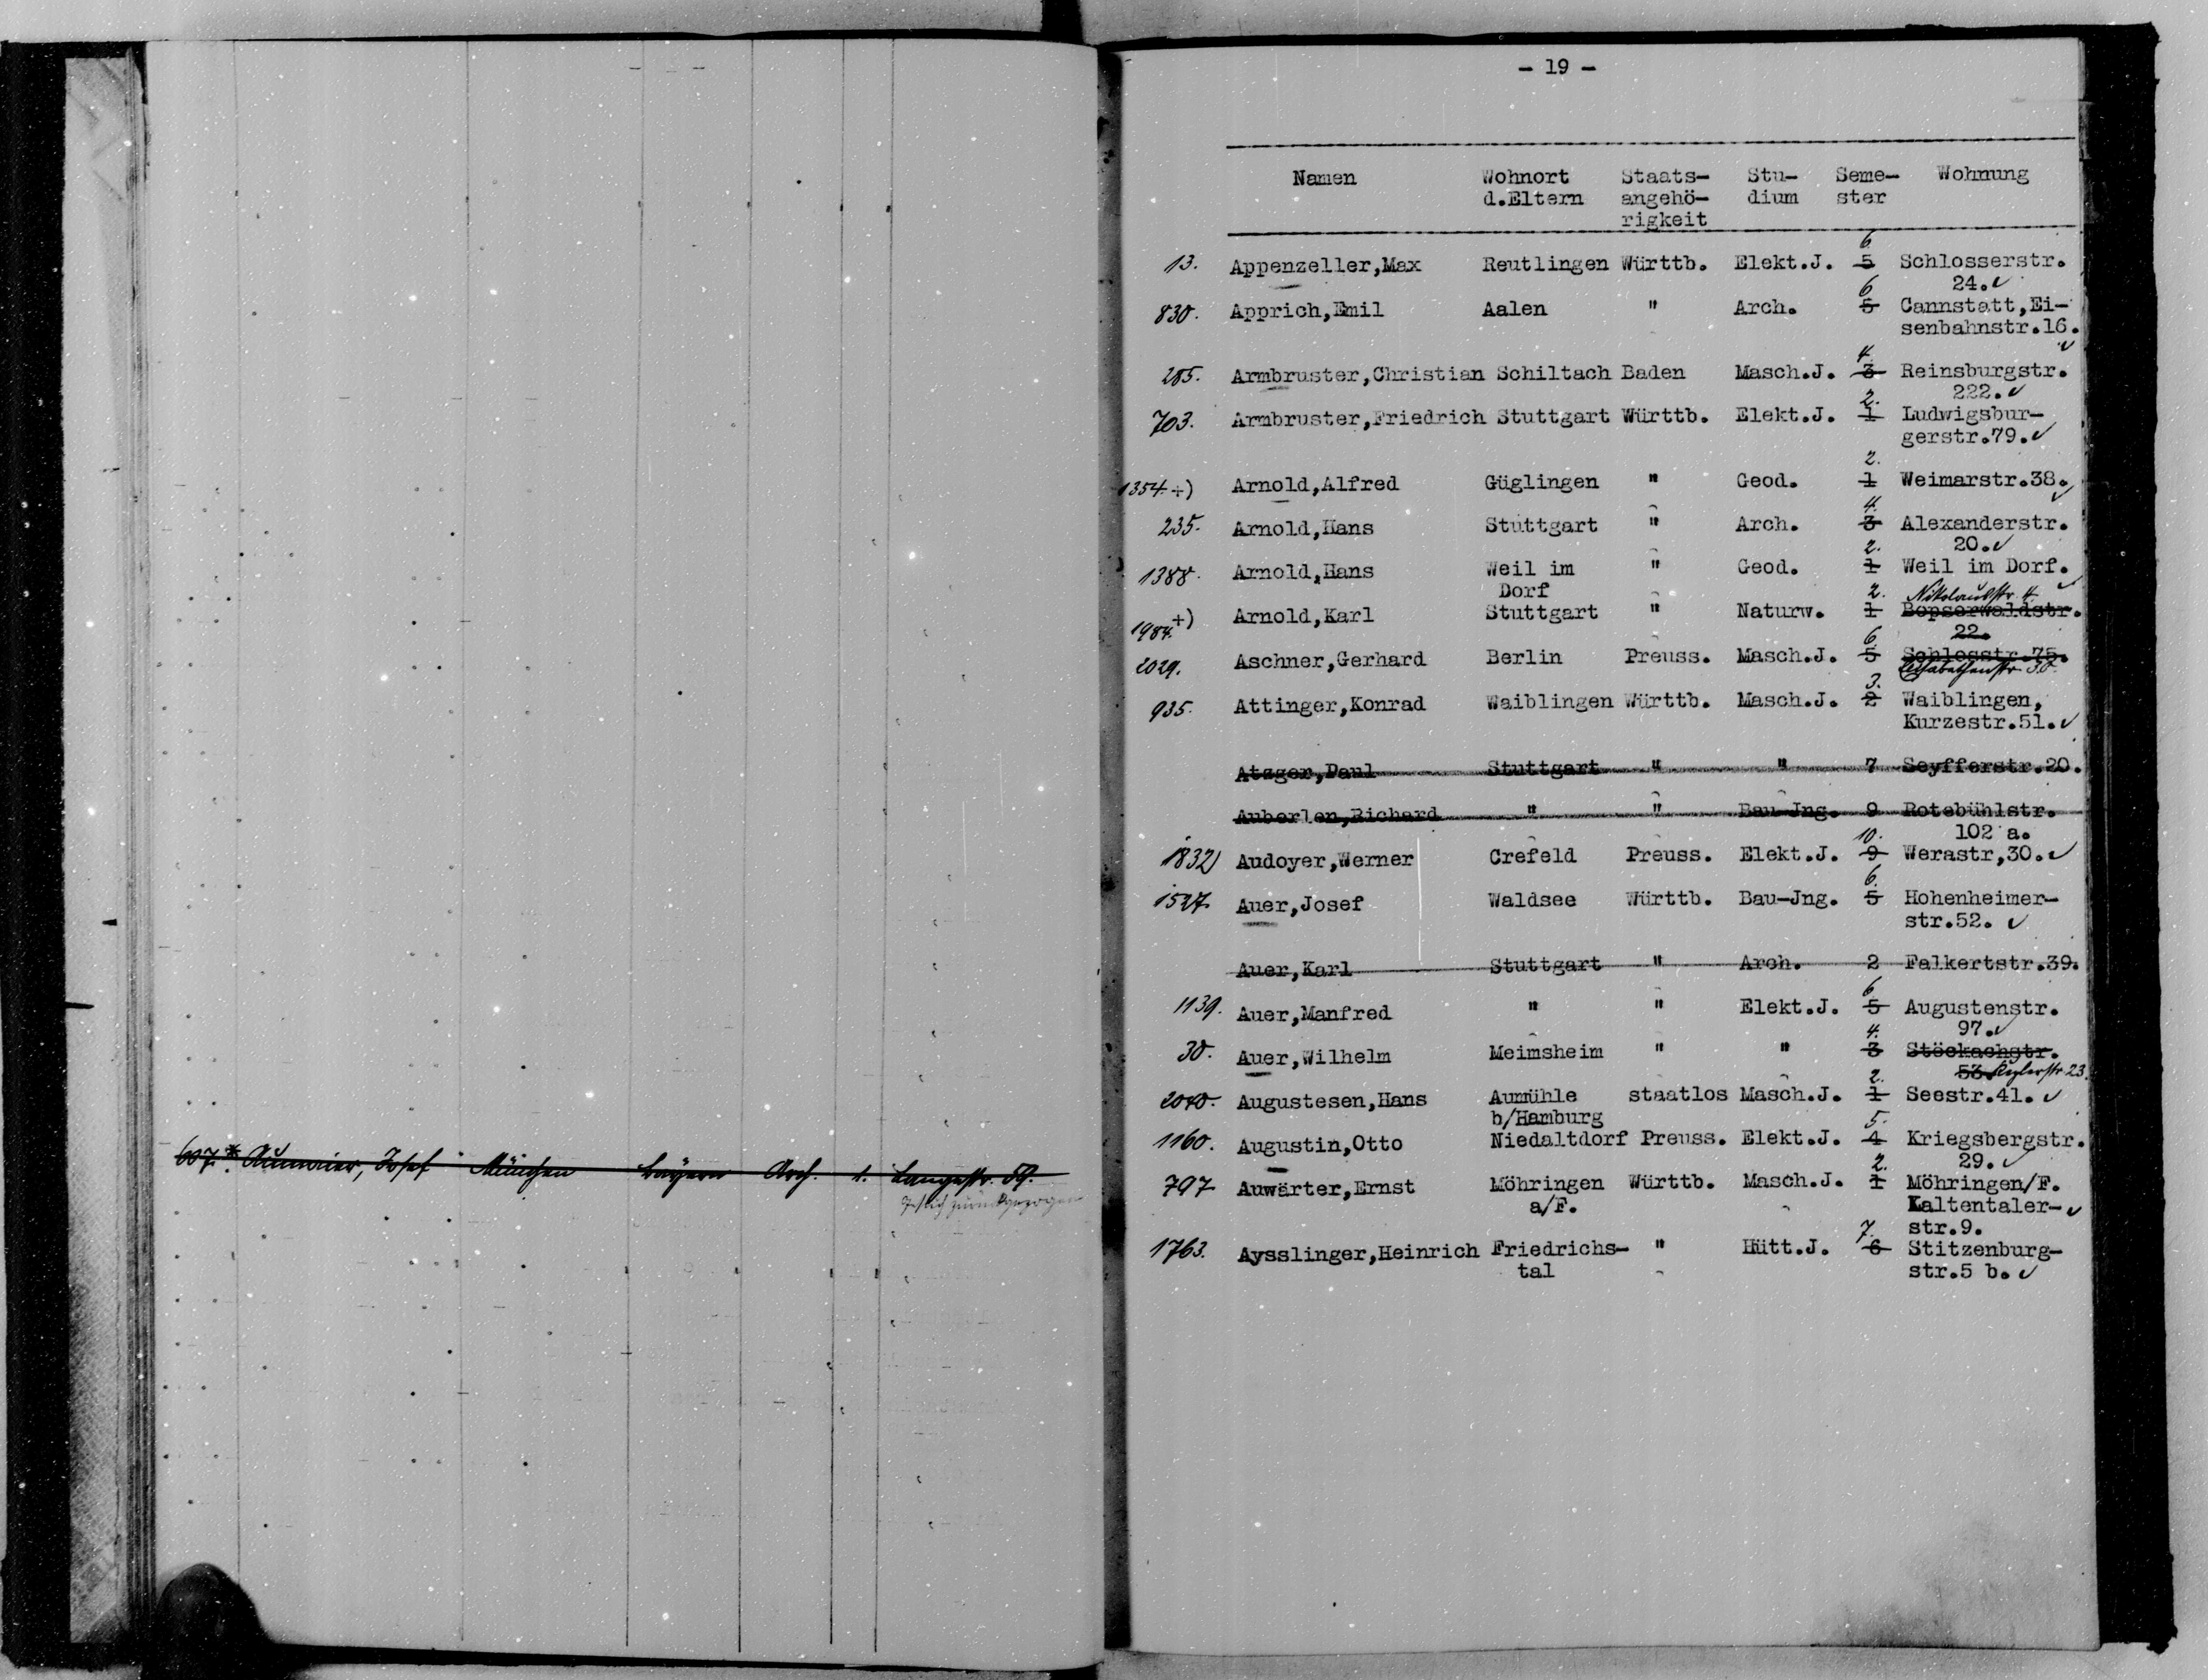 607.* Aumeier, Josef München Bayern Arch. 1. Langestr. 59.
zurückgezogen
- 19 -
Namen Wohnort Staats- Stu- Seme- Wohnung
d.Eltern angehö- dium ster
rigkeit
6
13. Appenzeller,Max Reutlingen Württb. Elekt.J. 5 Schlosserstr.
6 24.✓
830. Apprich,Emil Aalen " Arch. 5 Cannstatt,Ei-
senbahnstr.16.
4. ✓
285. Armbruster,Christian Schiltach Baden Masch.J. 3 Reinsburgstr.
2. 222.✓
703. Armbruster,Friedrich Stuttgart Württb. Elekt.J. 1 Ludwigsbur-
gerstr.79.✓
2.
1354.+) Arnold,Alfred Güglingen " Geod. 1 Weimarstr.38.✓
4.
235. Arnold,Hans Stuttgart " Arch. 3 Alexanderstr.
2. 20.✓
1388. Arnold,Hans Weil im " Geod. 1 Weil im Dorf.✓
Dorf 2. Nikolausstr. 4.
1984.+) Arnold,Karl Stuttgart " Naturw. 1 Bopserwaldstr.
6 22.
2029. Aschner,Gerhard Berlin Preuss. Masch.J. 5 Schlosstr.75.
3. Elisabethenstr.
935. Attinger,Konrad Waiblingen Württb. Masch.J. 2 Waiblingen,
Kurzestr.51.✓
Atzger,Paul Stuttgart " " 7 Seyfferstr.20.
Auberlen,Richard " " Bau-Jng. 9 Rotebühlstr.
10. 102 a.
1832) Audoyer,Werner Crefeld Preuss. Elekt.J. 9 Werastr,30.✓
6.
1527. Auer,Josef Waldsee Württb. Bau-Jng. 5 Hohenheimer-
str.52. ✓
Auer,Karl Stuttgart " Arch. 2 Falkertstr.39.
6
1139. Auer,Manfred " " Elekt.J. 5 Augustenstr.
4. 97.✓
30. Auer,Wilhelm Meimsheim " " 3 Stöckachstr.
2. 53. 23.
2040. Augustesen,Hans Aumühle staatlos Masch.J. 1 Seestr.41. ✓
b/Hamburg 5.
1160. Augustin,Otto Niedaltdorf Preuss. Elekt.J. 4 Kriegsbergstr.
2. 29.✓
797. Auwärter,Ernst Möhringen Württb. Masch.J. 1 Möhringen/F.
a/F. Kaltentaler-✓
7. str.9.
1763. Aysslinger,Heinrich Friedrichs- " Hütt.J. 6 Stitzenburg-
tal str.5 b.✓